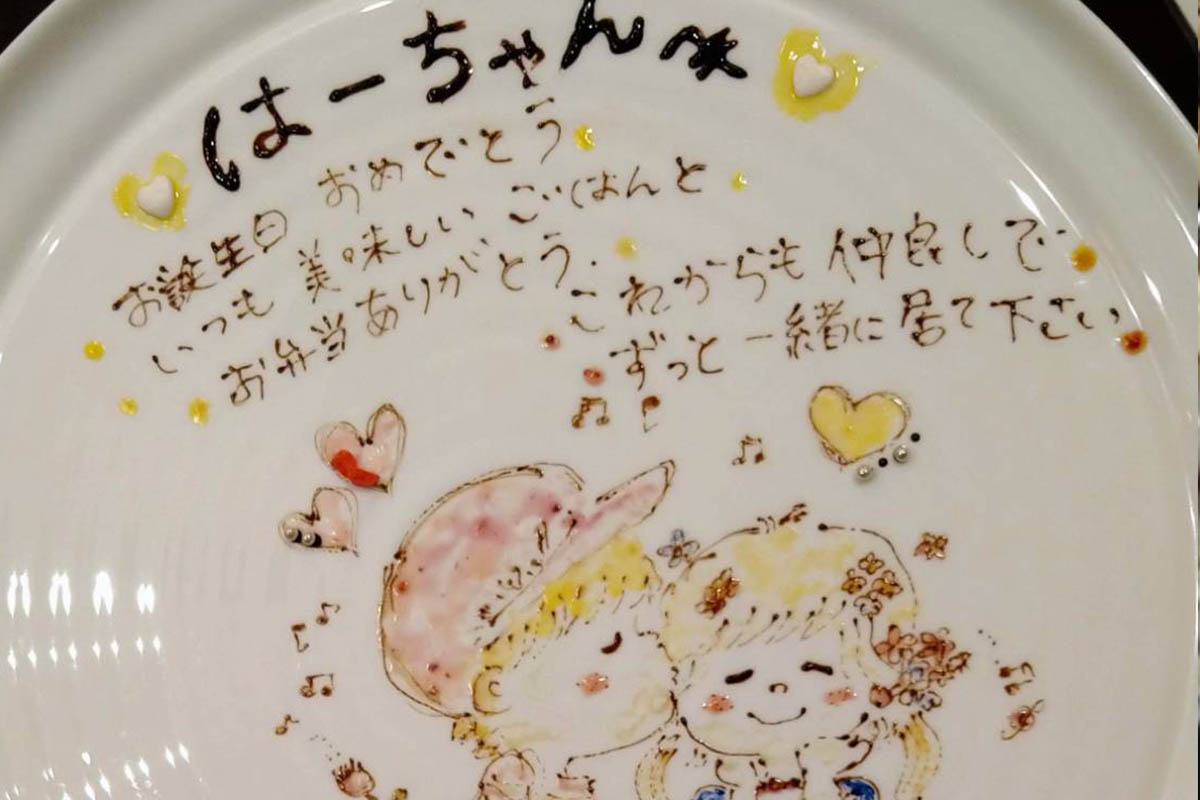 はーちゃん
お誕生日 おめでとう
いつも 美味しい ごはんと
お弁当ありがとう.
これからも 仲良しで
ずっと 一緒に 居て 下さい